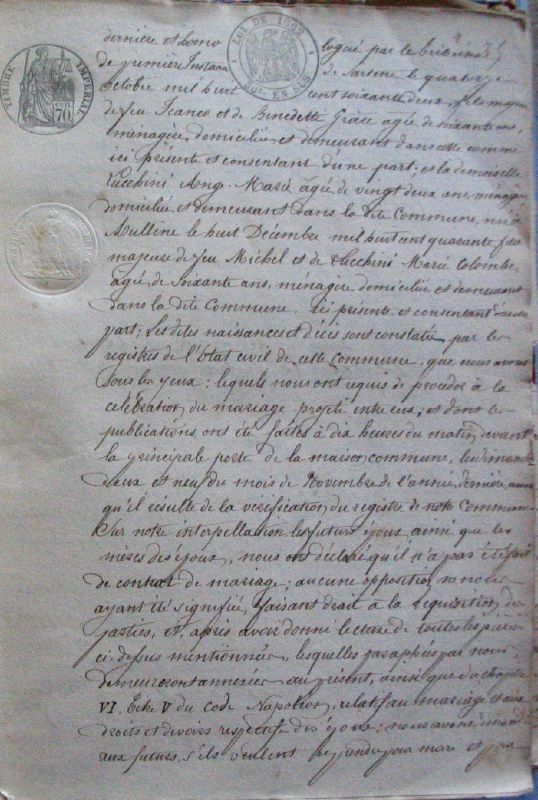 TIMBRE IMPÉRIAL
70
LOI DE 1862
EN SUS
dernière et homo logué par le tribunal
de première Instance de Sartene le quatorze
octobre mil huit cent soixante deux, fils majeur
de feu Franco et de Benedette Grâce agée de soixante ans,
ménagère, domiciliée et demeurant dans cette commune
ici présente et consentant d'une part; et la demoiselle
Lucchini Ang. Marie agée de vingt deux ans, ménagère
domiciliée et demeurant dans la dite Commune, née à
le huit Décembre mil huit cent quarante, fille
majeure de feu Michel et de Lucchini Marie Colombe,
agée de soixante ans, ménagère domiciliée et demeurant
dans la dite Commune. ici présente et consentant d'autre
part; Les dites naissances et décès sont constatés par les
registres de l'Etat civil de cette Commune, que nous avons
sous les yeux: lequels nous ont requis de procéder à la
célébration du mariage projeté entre eux; et dont les
publications ont été faites à dix heures du matin devant
la principale porte de la maison commune, les dimanches
deux et neuf du mois de Novembre de l'année dernière, ainsi
qu'il résulte de la vérification du registre de notre Commune
Sur notre interpellation les futurs époux, ainsi que les
mères des époux, nous ont déclaré qu'il n'a pas été fait
de contrat de mariage; aucune opposition ne nous
ayant été signifiée, faisant droit à la requisition des
parties, et, après avoir donné lecture de toutes les pièces
ci-dessus mentionnées, lesquelles paraphées par nous
demeureront annexées au présent, ainsi que du chapitre
VI. titre V du Code Napoléon, relatif au mariage et aux
droits et devoirs respectifs des époux; nous avons demandé
aux futurs s'ils veulent se prendre pour mari et pour